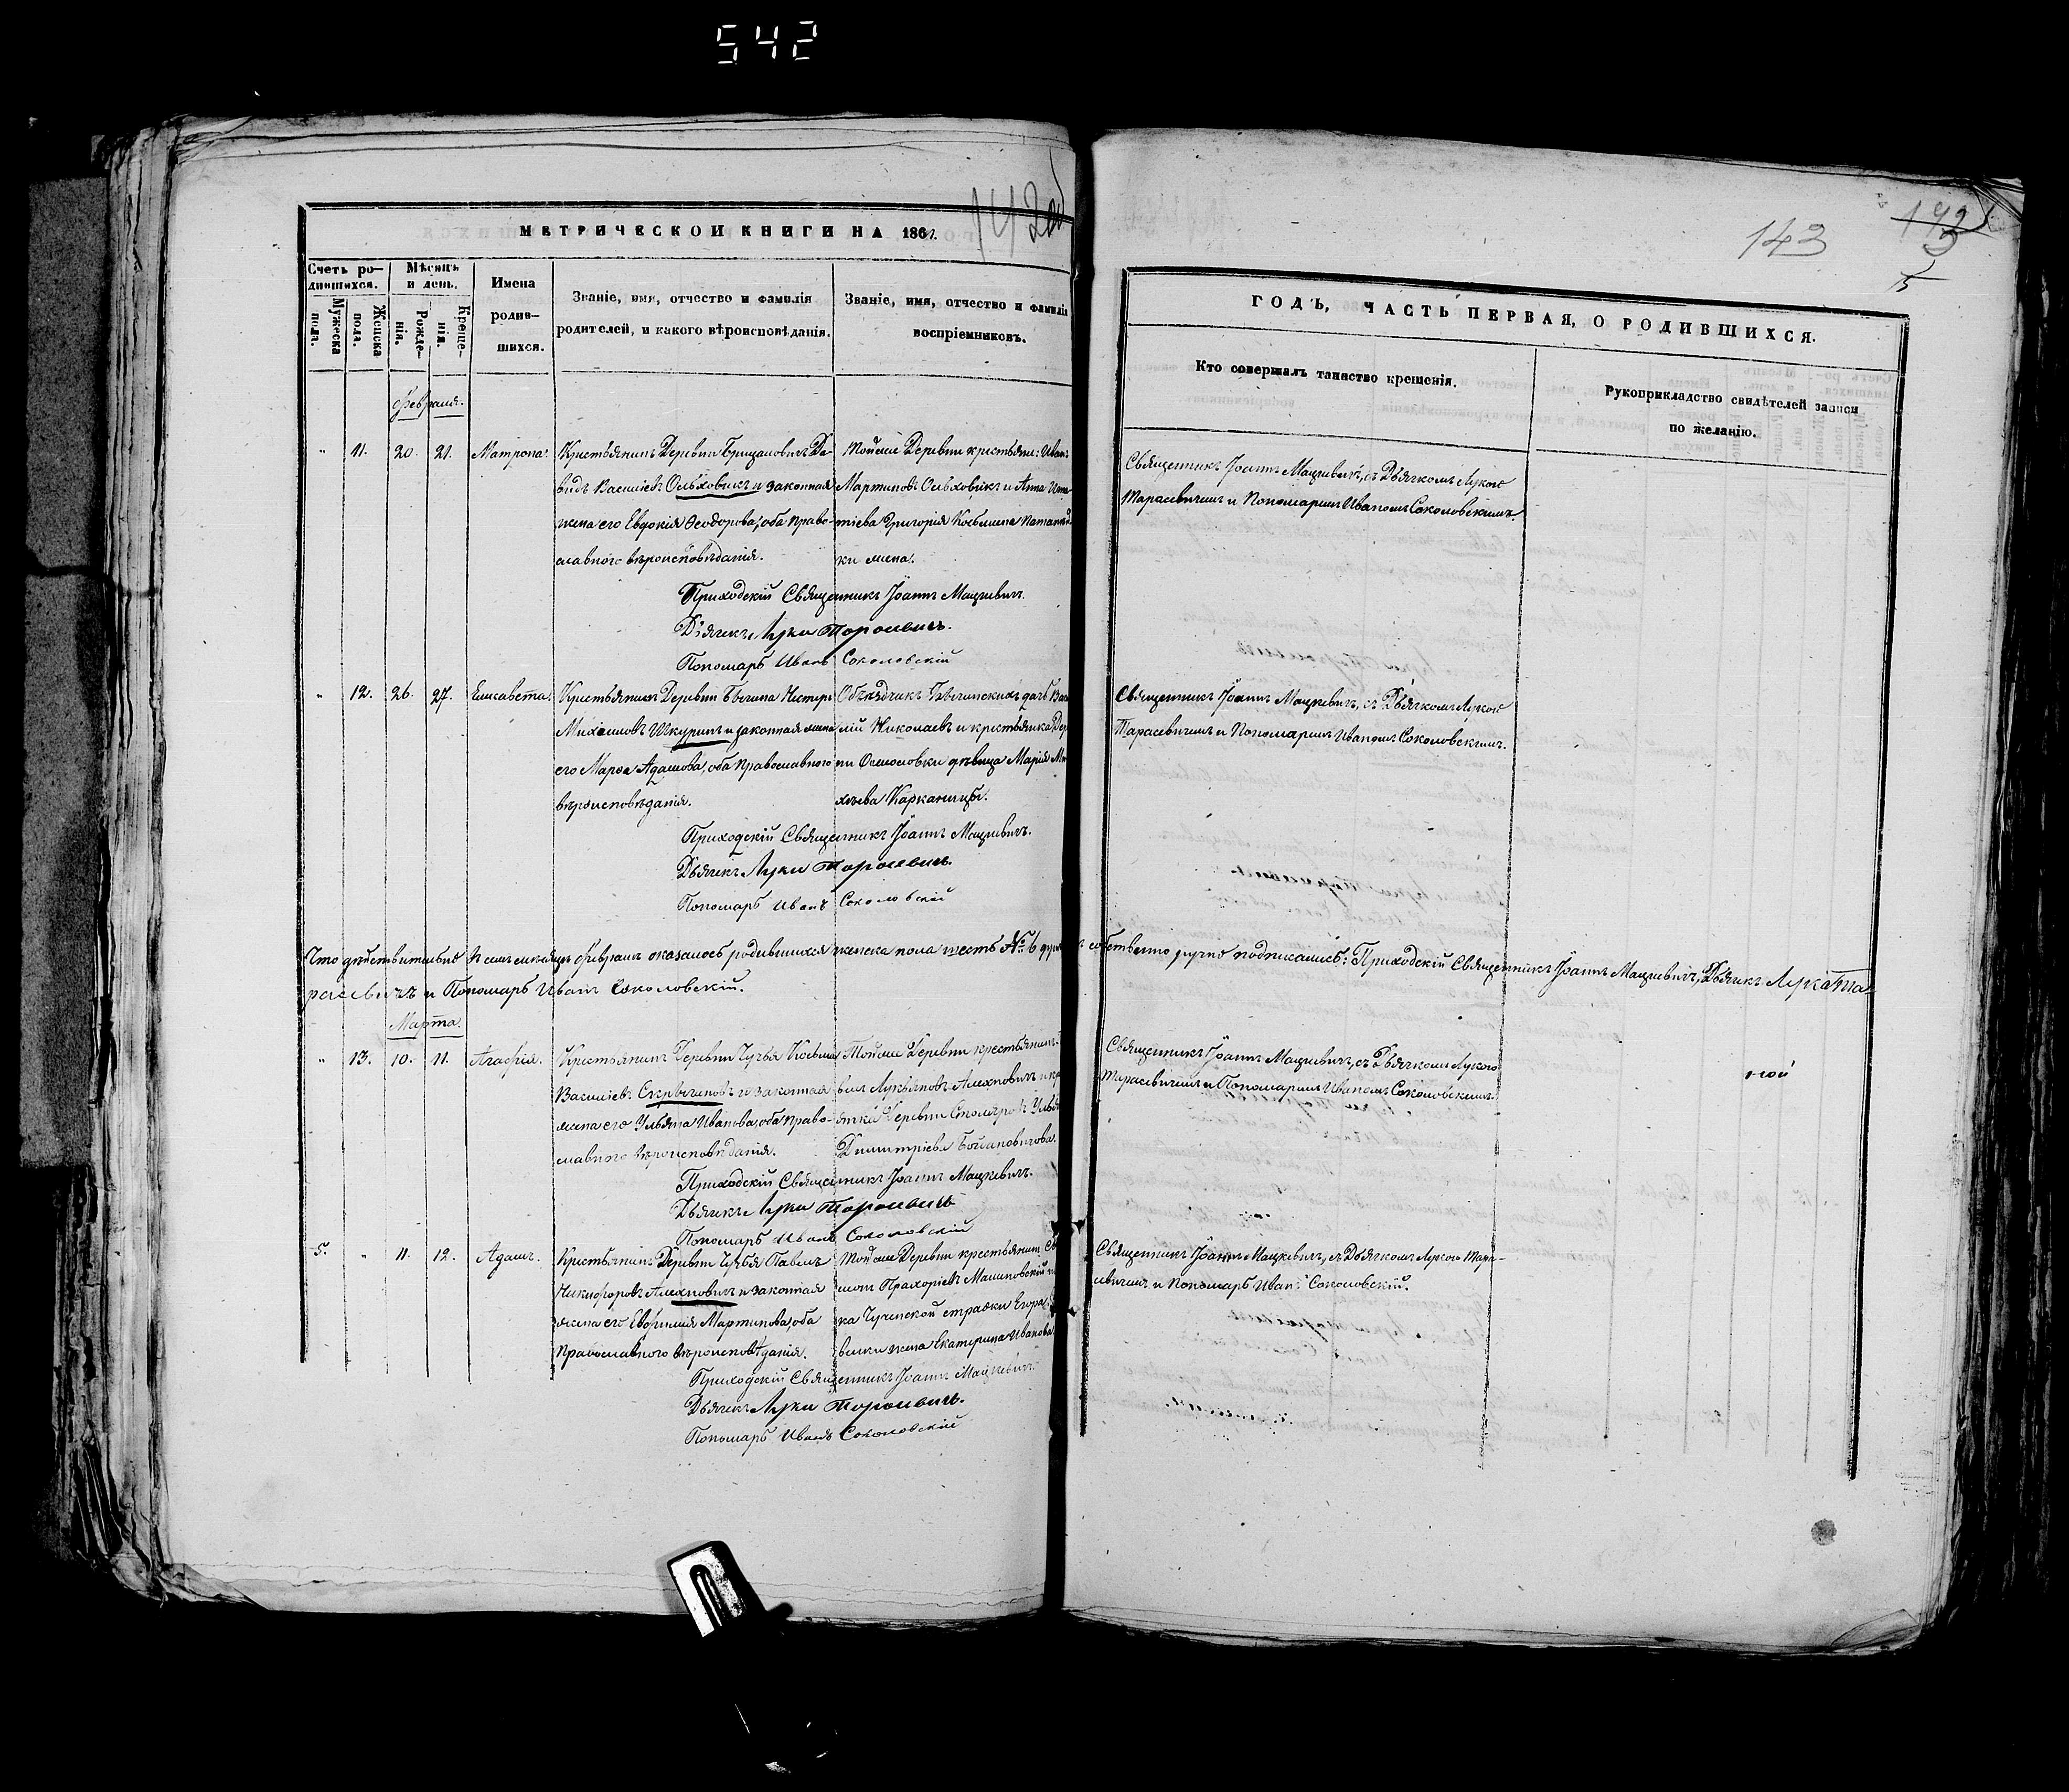 542
142об
МЕТРИЧЕСКОИ КНИГИ НА 1861.
Счетъ ро-
дившихся.
Мѣсяцъ
и день.
Мужеска
пола.
Женска
пола.
Рожде-
нія.
Креще-
нія.
Имена
родив-
шихся.
Званіе, имя, отчество и фамилія
родителей, и какого вѣроисповѣданія.
Званіе, имя, отчество и фамилія
воспріемниковъ.
Февраля.
" 11. 20. 21. Матрона.
Крестьянинъ Деревни Да-
видъ Васильевъ Ольховикъ и законная
жена его Евдокія Ѳеодорова, оба право-
славного вѣроисповѣданія.
Тойже Деревни крестьяне: Иванъ
Мартиновъ Ольховикъ и Анна
Григорія Косьмина
ки жена.
Приходскій Священникъ Іоаннъ Мацкевичъ.
Дьячекъ Лука Тарасевичъ.
Пономарь Иванъ Соколовскій
" 12. 26. 27. Елисавета.
Крестьянинъ Деревни Нестеръ
Михайловъ Шкуринъ и законная жена
его Марѳа Адамова, оба православного
вѣроисповѣданія.
Объѣздчикъ дачъ Васи-
лій Николаевъ и крестьянка Дер
ни Осмоловки дѣвица Марія Ми
хѣева
Приходскій Священникъ Іоаннъ Мацкевичъ.
Дьячекъ Лука Тарасевичъ.
Пономарь Иванъ Соколовскій
Что дѣйствительно въ семъ мѣсяцѣ Февралѣ оказалось родившихся женска пола шесть № 6 собственно ручно подписались: Приходскій Священникъ Іоаннъ Мацкевичъ, Дьячекъ Лука Та-
расевичъ и Пономарь Иванъ Соколовскій.
Марта.
" 13. 10. 11. Агафія.
Крестьянинъ Деревни Чучья Косьма
Васильевъ и законная
жена его Ульяна Иванова, оба право-
славного вѣроисповѣданія.
Тойже Деревни крестьянинъ
Лукьяновъ Алехновичъ и кр
янка Деревни
Димитріева
Приходскій Священникъ Іоаннъ Мацкевичъ.
Дьячекъ Лука Тарасевичъ
Пономарь Иванъ Соколовскій
5. " 11. 12. Адамъ.
Крестьянинъ Деревни Чучья Павелъ
Никифоровъ Алехновичъ и законная
жена его Евфимія Мартинова, оба
Православного вѣроисповѣданія.
Тойже Деревни крестьянинъ
Прахоріевъ Машновскій
ка Чученской стражи Егора
жена Екатерина Иванова
Приходскій Священникъ Іоаннъ Мацкевичъ
Дьячекъ Лука Тарасевичъ.
Пономарь Иванъ Соколовскій
143
ГОДЪ, ЧАСТЬ ПЕРВАЯ, О РОДИВШИХСЯ.
Кто совершалъ таинство крещенія.
Рукоприкладство свидѣтелей записи
по желанію.
Священникъ Іоаннъ Мацкевичъ, съ Дьячкомъ Лукою
Тарасевичемъ и Пономаремъ Иваномъ Соколовскимъ.
Священникъ Іоаннъ Мацкевичъ, съ Дьячкомъ Лукою
Тарасевичемъ и Пономаремъ Иваномъ Соколовскимъ.
Священникъ Іоаннъ Мацкевичъ, съ Дьячкомъ Лукою
Тарасевичемъ и Пономаремъ Иваномъ Соколовскимъ.
Священникъ Іоаннъ Мацкевичъ, съ Дьячкомъ Лукою Тара-
севичемъ и Пономарь Иванъ Соколовскій.